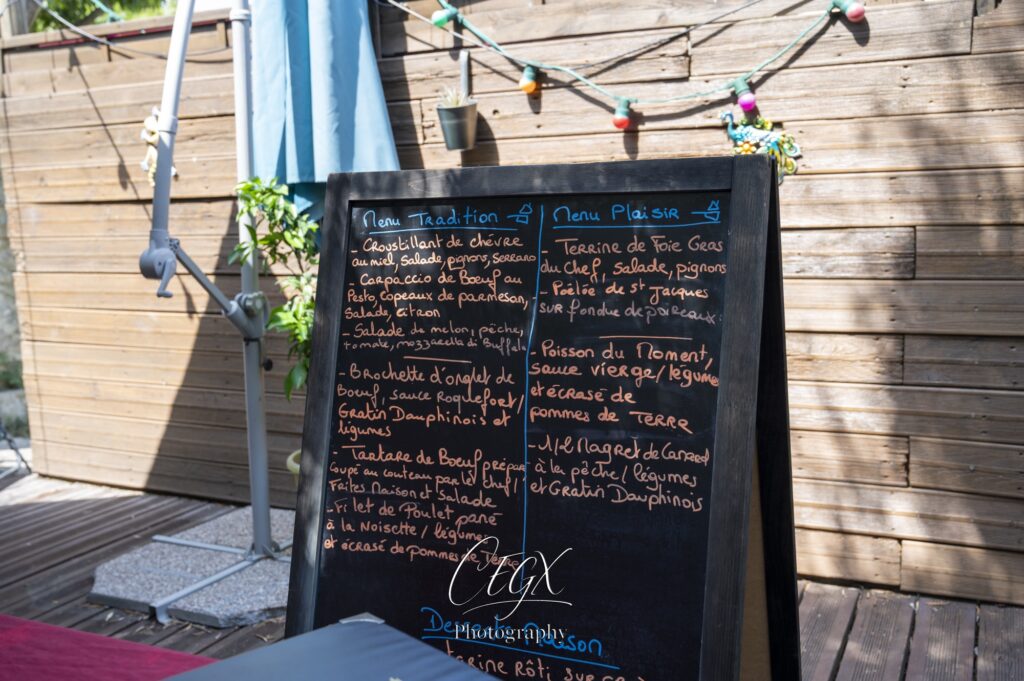 Menu Tradition
- Croustillant de chévre
au miel, Salade, pignons, Serrano
- Carpaccio de Boeuf au
Pesto, copeaux de parmesan,
Salade, citron
- Salade de melon, pêche,
tomate, mozzarella di Buffala
- Brochette d'onglet de
Boeuf, sauce Roquefort /
Gratin Dauphinois et
légumes
- Tartare de Boeuf préparé
Coupé au couteau par le Chef /
Frites Maison et Salade
- Filet de Poulet pané
à la Noisette / légumes
et écrasé de pommes de Terre
Menu Plaisir
- Terrine de Foie Gras
du Chef, Salade, pignons
- Poêlée de St Jacques
sur fondue de poireaux
- Poisson du Moment,
sauce vierge / légumes
et écrasé de
pommes de Terre
- 1/2 Magret de Canard
à la pêche / légumes
et Gratin Dauphinois
Desserts Maison
rôti sur
CEGX
Photography